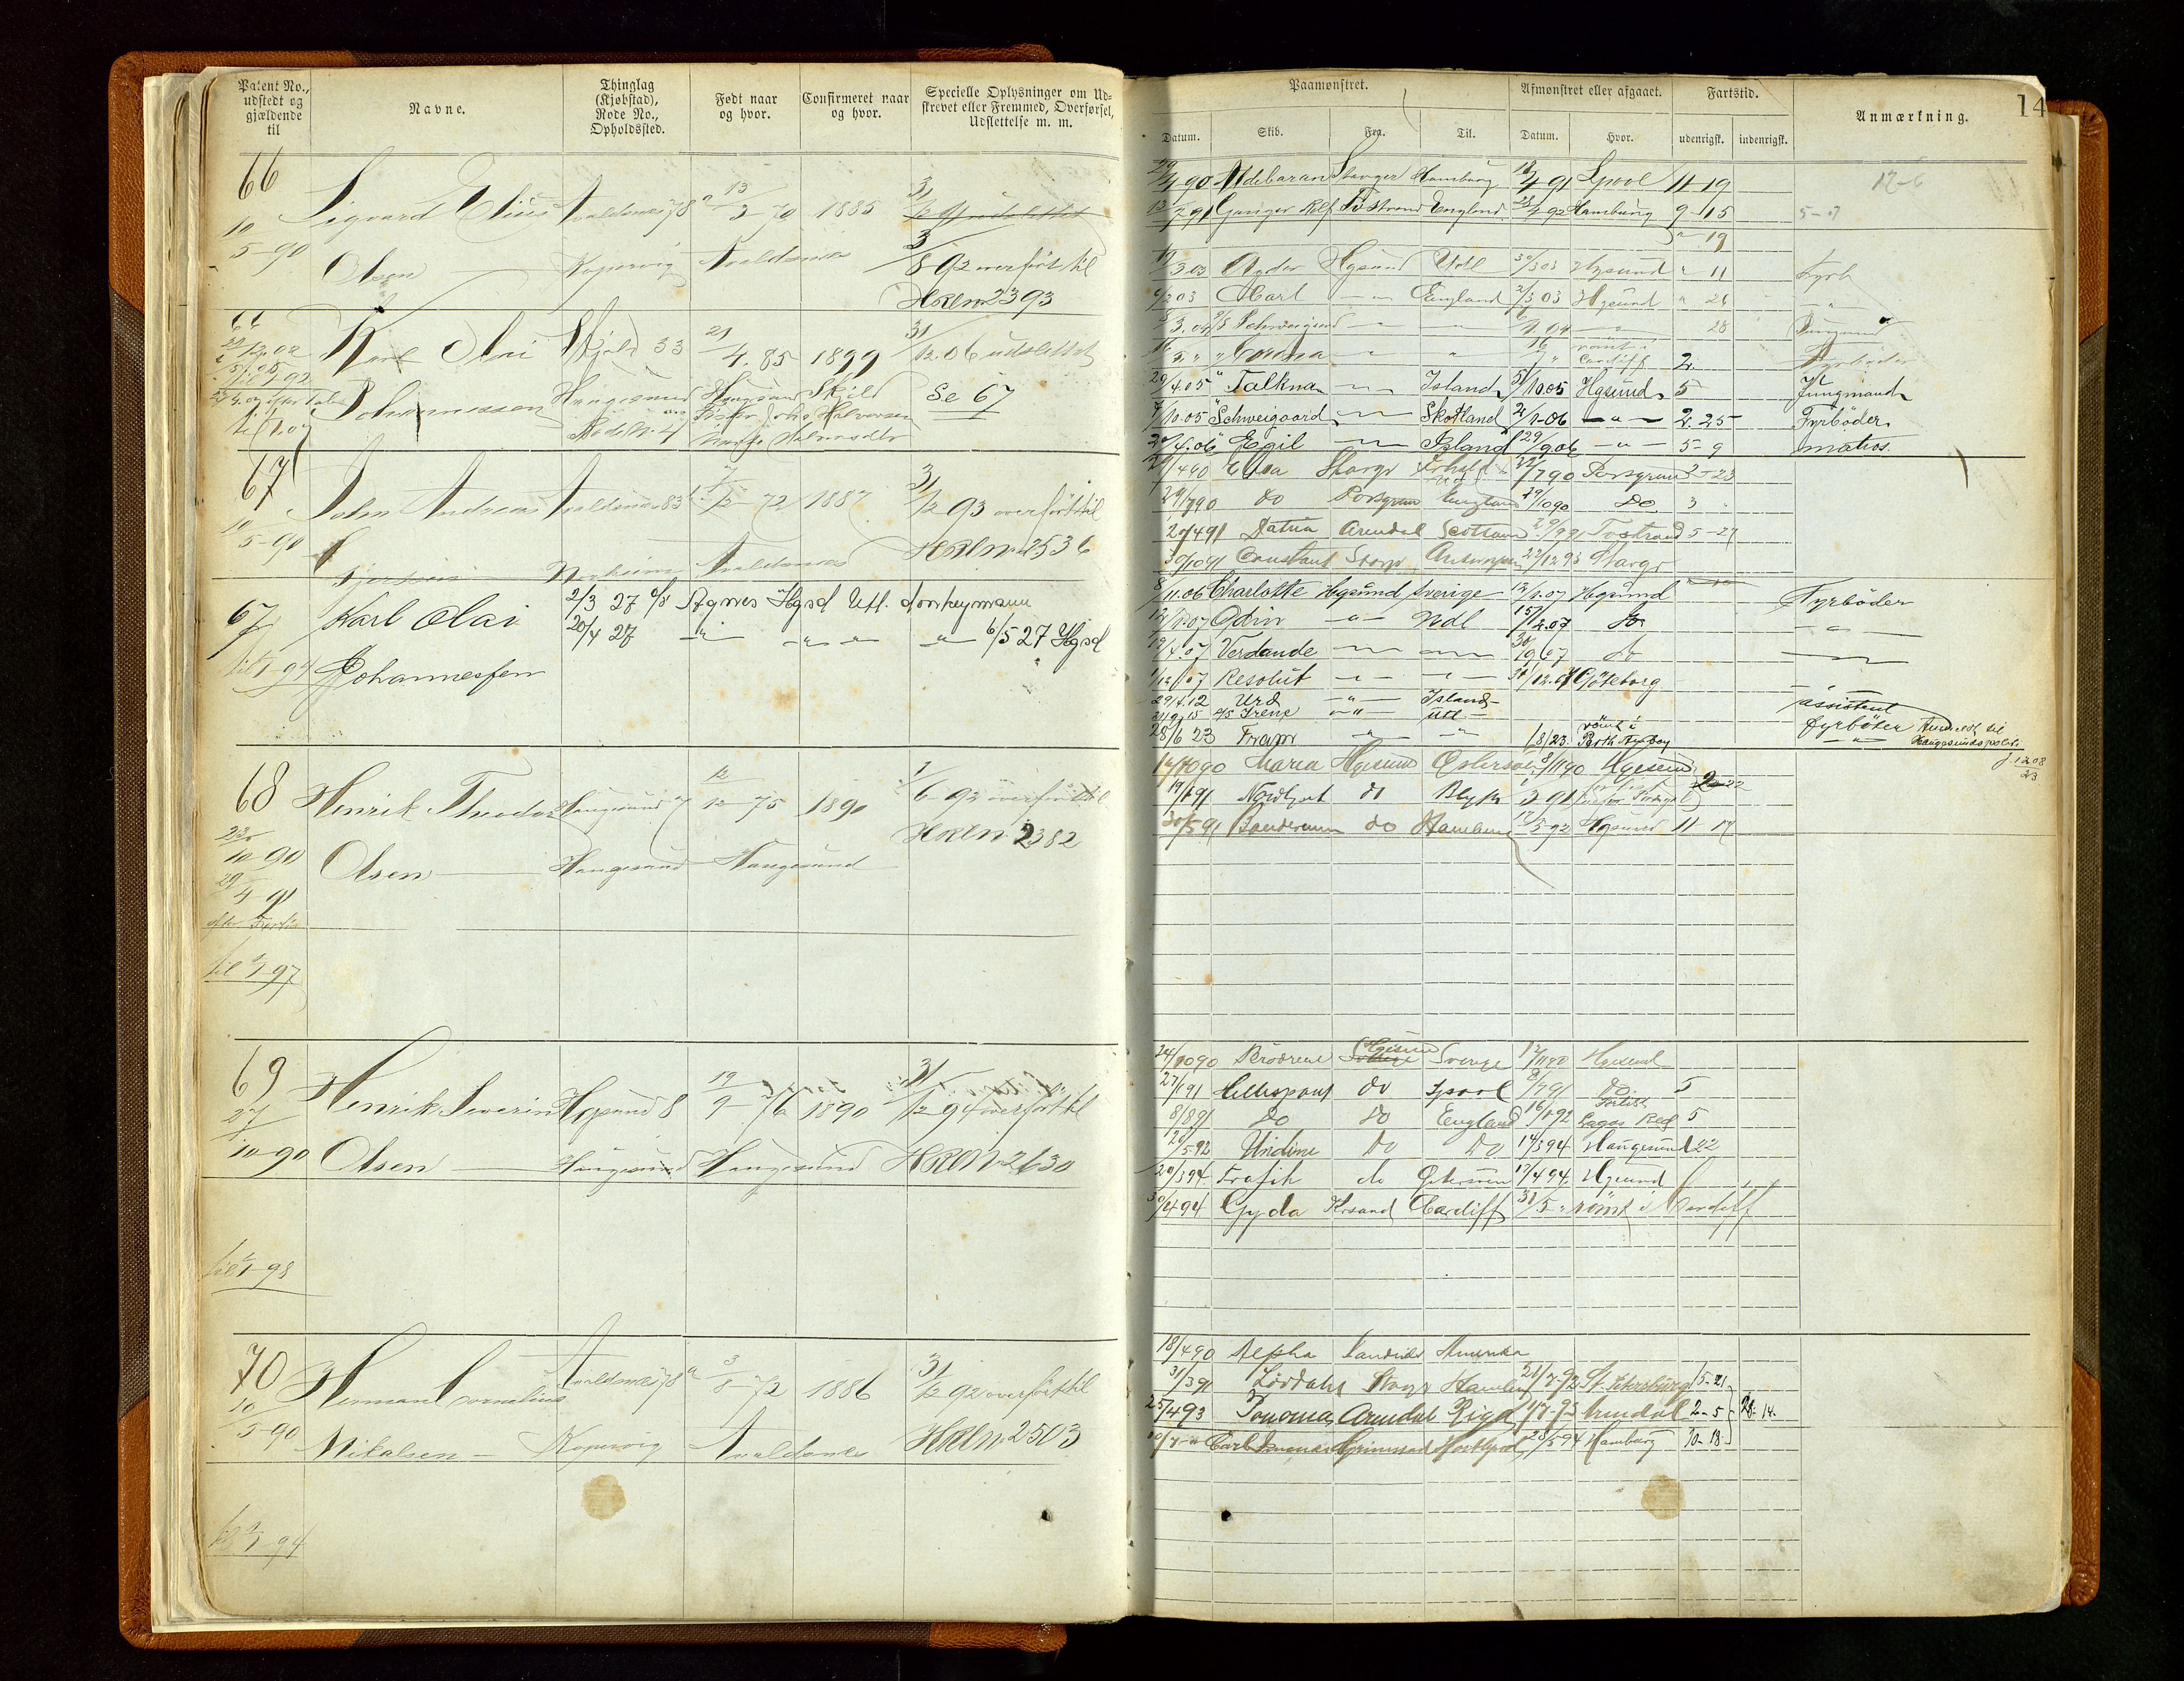 Patent No., udstedt og gjældende til
Navne.
Thinglag (Kjøbstad), Rode No., Opholdssted.
Født naar og hvor.
Confirmeret naar og hvor.
Specielle Oplysninger om Udskrevet eller Fremmed, Overførsel, Udslettelse m. m.
66
10/5-90
Sigvard Elius Olsen
Avaldsnes 78 a
Kopervig
13/3-70
Avaldsnes
1885
31/12 91 udslettet
3/8 92 overført til
HRLNr 2393
66
Karl Olai Johannessen
Skjold 33
Haugesund
Rode Nr. 4
21/4.85
1899
Skjold
31/12.06 udslettet
Se 67
67
10/5-90
John Andreas
Avaldsnes 83
1/12 72
Avaldsnes
1887
31/12 93 overført til
HRLNr 2536
67
til 1-94
Karl Olai Johannesfen
2/3 27 d/s Agnes Hgsd Utl. donkeymann
20/4 27 -"- -"- -"- 6/5 27 Hgsd
68
10-90
29/4 91
til 1/1-97
Henrik Theodor Olsen
Haugesund 7
Haugesund
12/12-75
Haugesund
1890
1/6-92 overført til
HRLNr 2382
69
27/10-90
til 1/1-98
Henrik Severin Olsen
Hgsund 8
Haugesund
19/9-76
Haugesund
1890
31/12 94 overført til
HRLNr 2630
70
10/5-90
til 1/1 94
Herman Cornelius Mikalsen
Avaldsnes 78 a
Kopervig
3/8-72
Avaldsnes
1886
31/12 92 overført til
HRLNr 2503
14
Paamønstret.
Afmønstret eller afgaaet.
Fartstid.
Anmærkning.
Datum. Skib. Fra. Til. Datum. Hvor. udenrigsk. indenrigsk.
29/4-90 Aldebaran Stavger Hamburg 18/4 91 Lpool 11-19 12-6
13/7 91 Ganger Rolf Tvstrand England 28/4 92 Hamburg 9-15
" 19
19/3.03 Agder Hgsund Utl 30/3 03 Hgsund " 11 Fyrb
Carl -"- England 2/3 03 Hgsund " 24 -"-
Schweigaard -"- -"- 28 Jungmand
Emma " " rømt i Cardiff 2. Fyrbøder
20/4.05 " Falkna -"- Island 5/10.05 Hgsund 5 Jungmand
7/10.05 Schweigaard -"- Skotland 2/1-06 -"- 2.25 Fyrbøder
20/4.06 Egil -"- Island 29/9.06 -"- 5-9 matros
Elisa Stavgr 22/7 90 Porsgrund 2-23
29/7 90 do Porsgrun England 29/10 90 Do 3
20/4 91 Patria Arendal Scotland 29/9 91 Tvstrand 5-27
30/10 91 Constant Stavgr Antwerpen 22/12 93 Stavgr
8/11.06 Charlotte Hgsund Sverige 12/1.07 Hgsund Fyrbøder
12/1.07 Odin -"- Udl 15/2.07 do -"-
12/4.07 Verdande -"- -"- 30/9 07 do -"-
1/12/07 Resolut -"- -"- 31/12.07 Göteborg
29/4.12 Urd -"- Island- assistent
21/9 15 d/s Irene -"- Utl- fyrbøter
28/6 23 Fram -"- -"- 1/8/23. rømt i Perth Amboy -"- Anmeldt til Haugesunds politi j. 1208/23
17/10 90 Maria Hgesund Østersøen 8/11 90 Hgesund
19/1 91 Nordlyset do Blyth 5 91 2-22
30/5 91 Banderman do Hamburg 12/5 92 Hgsund 11-17
24/10 90 Brødrene Hgesund Sverige 12/11 90 Hgesund
27/1 91 Hellespont do Lpool 8/7 91 Do 5
8/8 91 Do Do England 16/1 92 Forlist Lagos Red 5
20/5-92 Undine Do Do 14/3 94 Haugesund 22
20/3 94 Trafik do Østersøen 17/4 94 Hgesund
30/4 94 Gyda Krsand Cardiff 31/5 " rømt i Cardiff
18/4 90 Alpha Sandvik Amerika
31/3 91 Lørdahl Stavgr Hamburg 21/7-92 St. Petersburg 15-21
25/4 93 Pomona Arendal Riga 1/7-93 Arendal 2-5 28-14.
Carl Grimstad Hartlpool 28/5-94 Hamburg 10-18